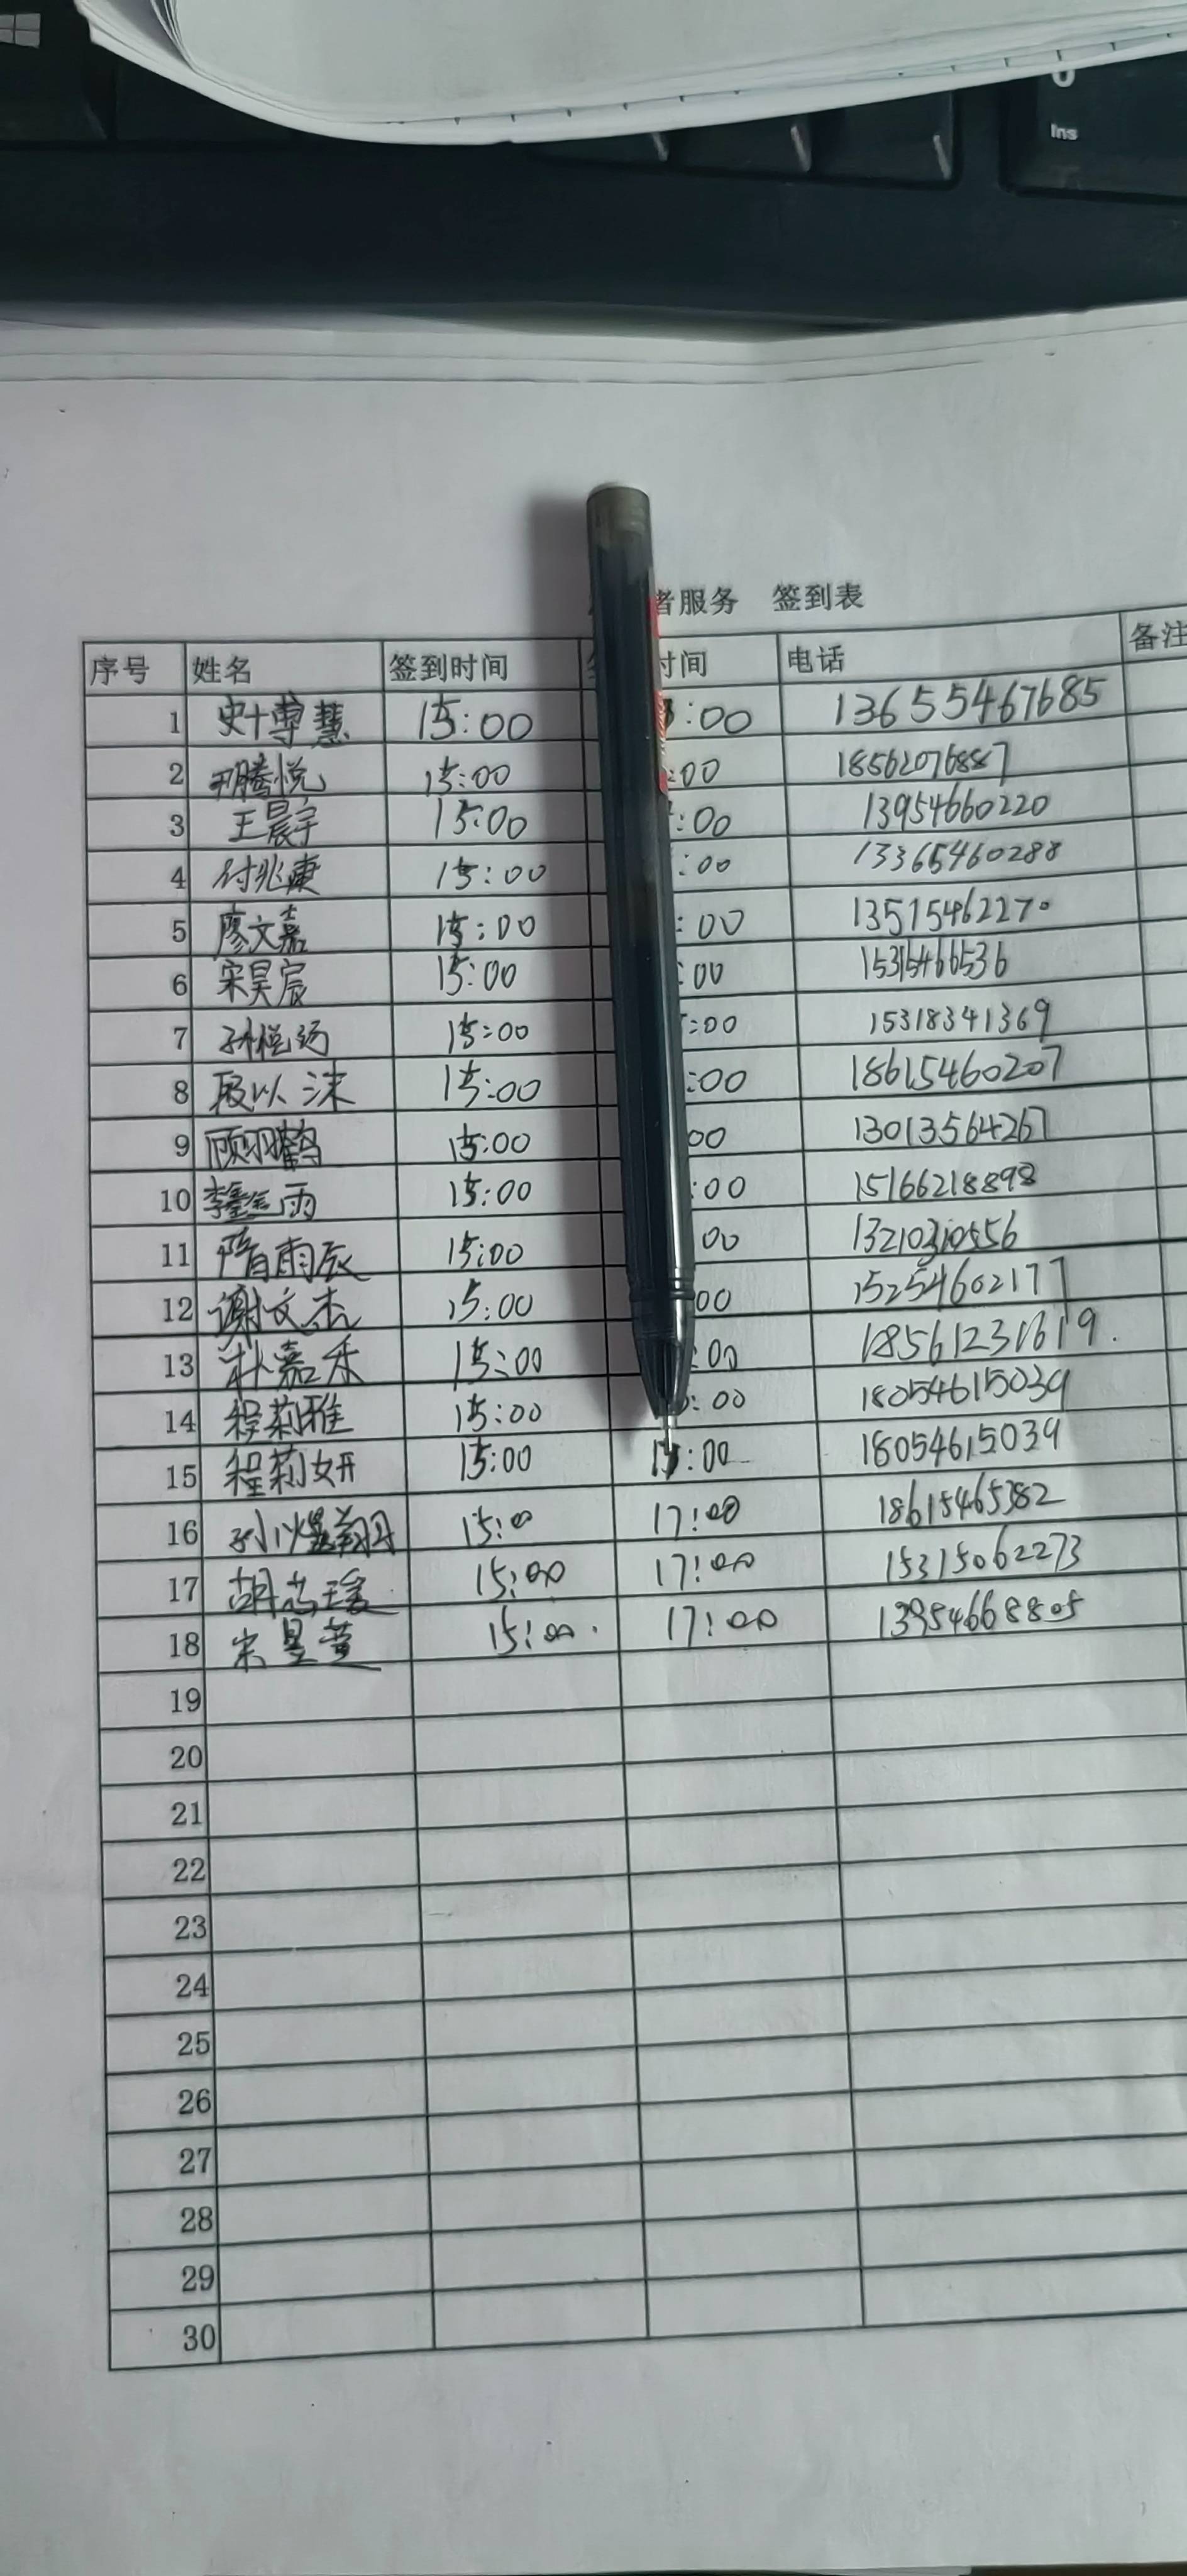 Ins
者服务 签到表
序号 姓名 签到时间 时间 电话 备注
1 史博慧 15:00 :00 13655467685
2 腾悦 15:00 :00 18562076887
3 王晨宇 15:00 :00 13954660220
4 付兆康 15:00 :00 13365460288
5 廖文嘉 15:00 :00 13515462270
6 宋昊宸 15:00 :00 15315466536
7 孙悦 15:00 :00 15318341369
8 段以沫 15:00 :00 18615460207
9 顾羽鹤 15:00 00 13013564267
10 李鑫雨 15:00 :00 15166218898
11 隋雨辰 15:00 00
12 谢文杰 15:00 00 15254602177
13 朴嘉禾 15:00 :00 18561231619.
14 程莉雅 15:00 :00 18054615039
15 程莉妍 15:00 :00 18054615039
16 孙 15:00 17:00 18615465382
17 胡志瑗 15:00 17:00 15315062273
18 宋昱萱 15:00. 17:00 13954668805
19
20
21
22
23
24
25
26
27
28
29
30